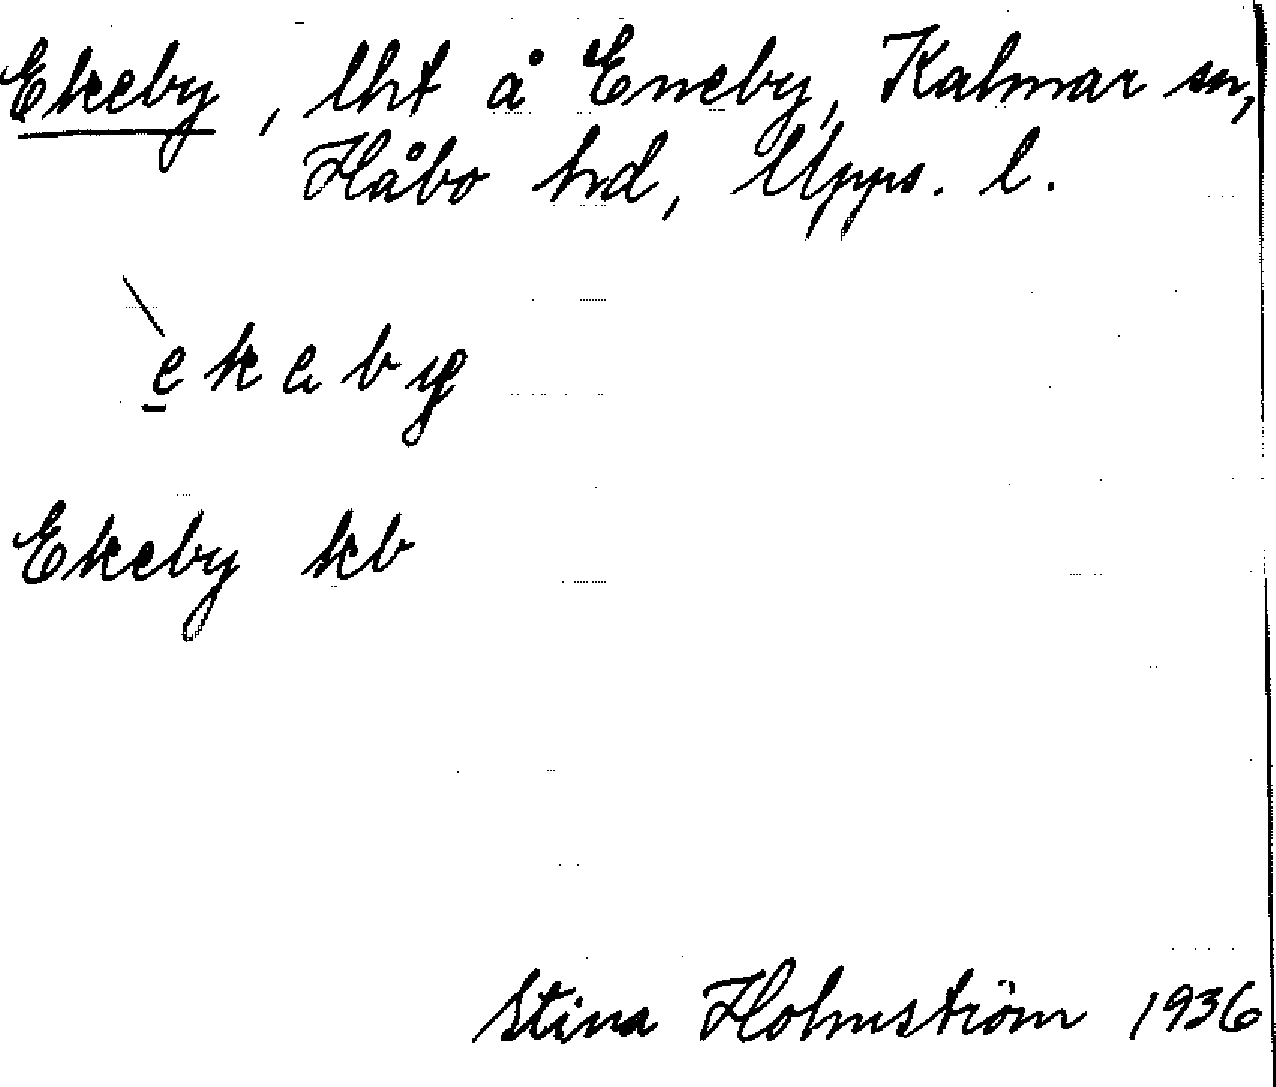 Ekeby, lht å Eneby, Kalmar sn,
Håbo hd, Upps. l.
\ekeby
Ekeby kb
Stina Holmström 1936